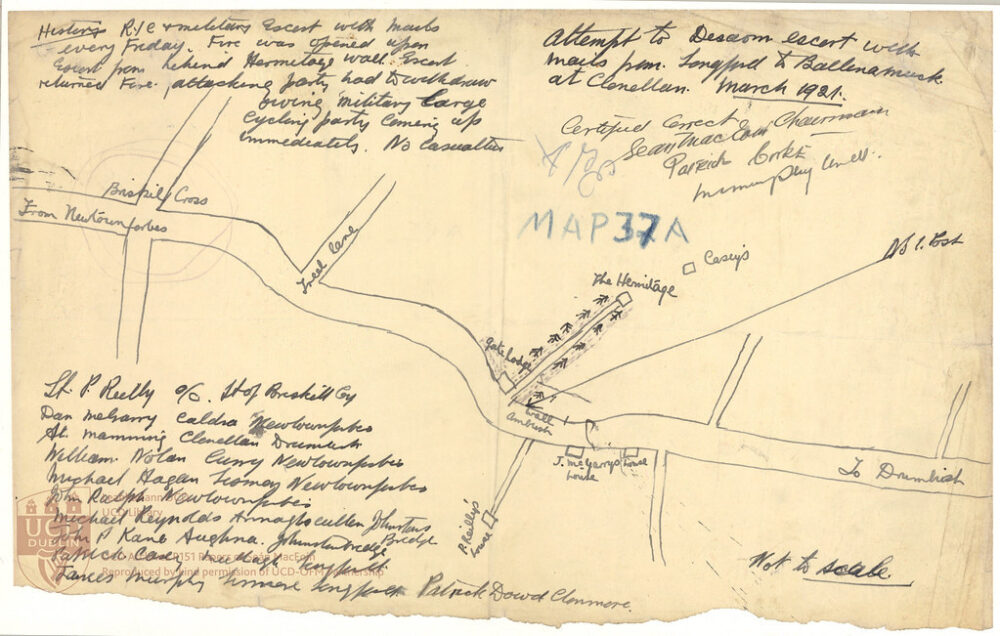 History RIC & military Escort with Mails
every Friday. Fire was opened upon
Escort from behind Hermitage wall. Escort
returned Fire. attacking party had to withdraw
owing military large
cycling party coming up
immediately. No Casualties
Attempt to Disarm escort with
mails from Longford to Ballinamuck
at Clenellan. March 1921.
Certified Correct
Sean MacEoin Chairman
Patrick
MAP 37A
Briskill Cross
From Newtownforbes
Lane
The Hermitage
Casey's
No 1. Post
Gate Lodge
Wall
Ambush
J. McGarry's house
house
P. Reilly's
house
To Drumlish
Not to scale
Lt. P. Reilly O/C. Briskill Coy
Dan McGarry Caldra Newtownforbes
Manning Clenellan Drumlish
William Nolan Curry Newtownforbes
Michael Hagan Newtownforbes
John Ralph Newtownforbes
Michael Reynolds Johnstons
Bridge
John P Kane Aughna. Johnstonbridge
Patrick Casey Longford
James Murphy Longford Patrick Dowd Clonmore.
UCD
DUBLIN
UCD Library
P151 Papers of Seán MacEoin
Reproduced by kind permission of UCD-OFM Partnership